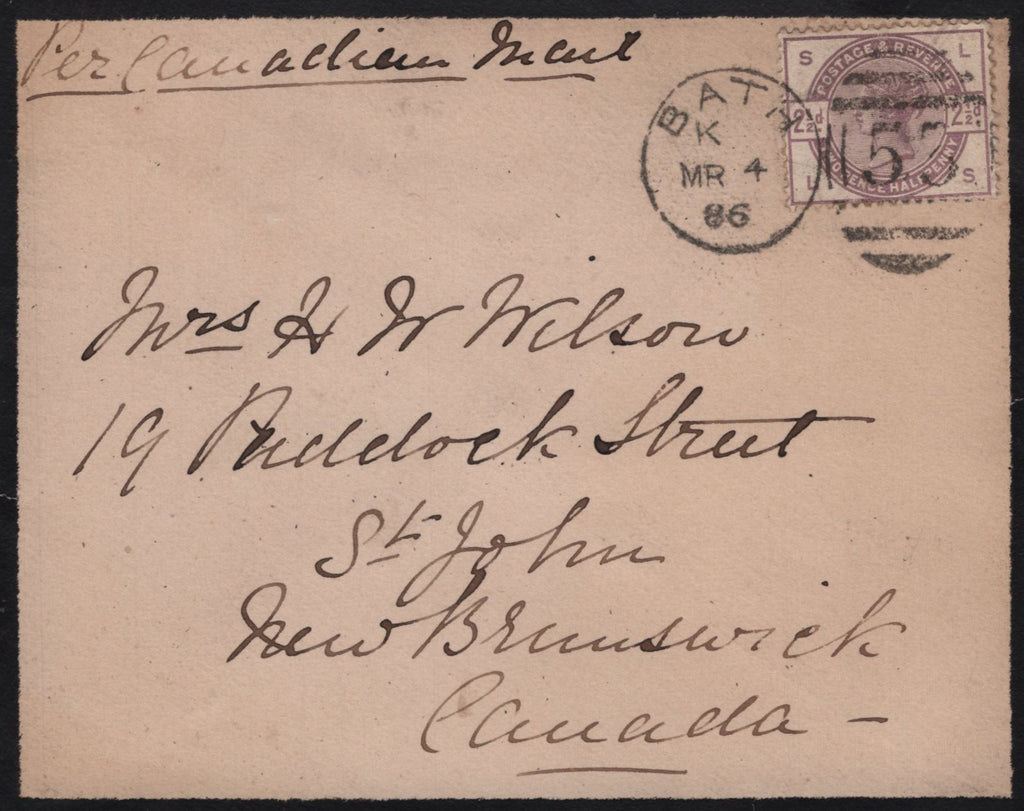 Per Canadian Mail
S L
POSTAGE & REVENUE
2½d. 2½d.
TWOPENCE HALFPENNY
L S
BATH
K
MR 4
86
53
Mrs H W Wilson
19 Paddock Street
St John
New Brunswick
Canada –